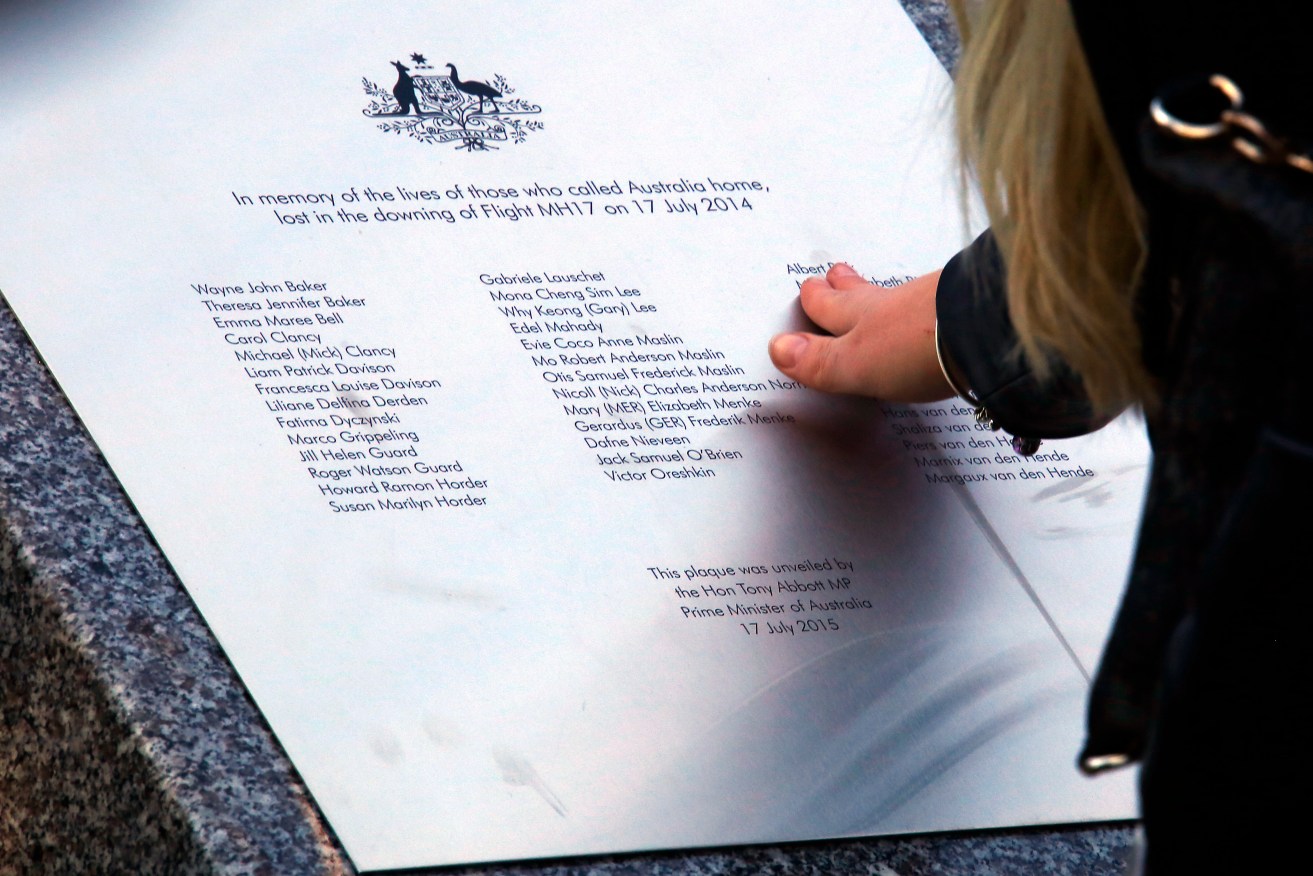 AUSTRALIA
In memory of the lives of those who called Australia home,
lost in the downing of Flight MH17 on 17 July 2014
Wayne John Baker
Theresa Jennifer Baker
Emma Maree Bell
Carol Clancy
Michael (Mick) Clancy
Liam Patrick Davison
Francesca Louise Davison
Liliane Delfina Derden
Fatima Dyczynski
Marco Grippeling
Jill Helen Guard
Roger Watson Guard
Howard Ramon Horder
Susan Marilyn Horder
Gabriele Lauschet
Mona Cheng Sim Lee
Why Keong (Gary) Lee
Edel Mahady
Evie Coco Anne Maslin
Mo Robert Anderson Maslin
Otis Samuel Frederick Maslin
Nicoll (Nick) Charles Anderson
Mary (MER) Elizabeth Menke
Gerardus (GER) Frederik Menke
Dafne Nieveen
Jack Samuel O'Brien
Victor Oreshkin
Albert
Hans van den
Shaliza van
Piers van den
Marnix van den Hende
Margaux van den Hende
This plaque was unveiled by
the Hon Tony Abbott MP
Prime Minister of Australia
17 July 2015